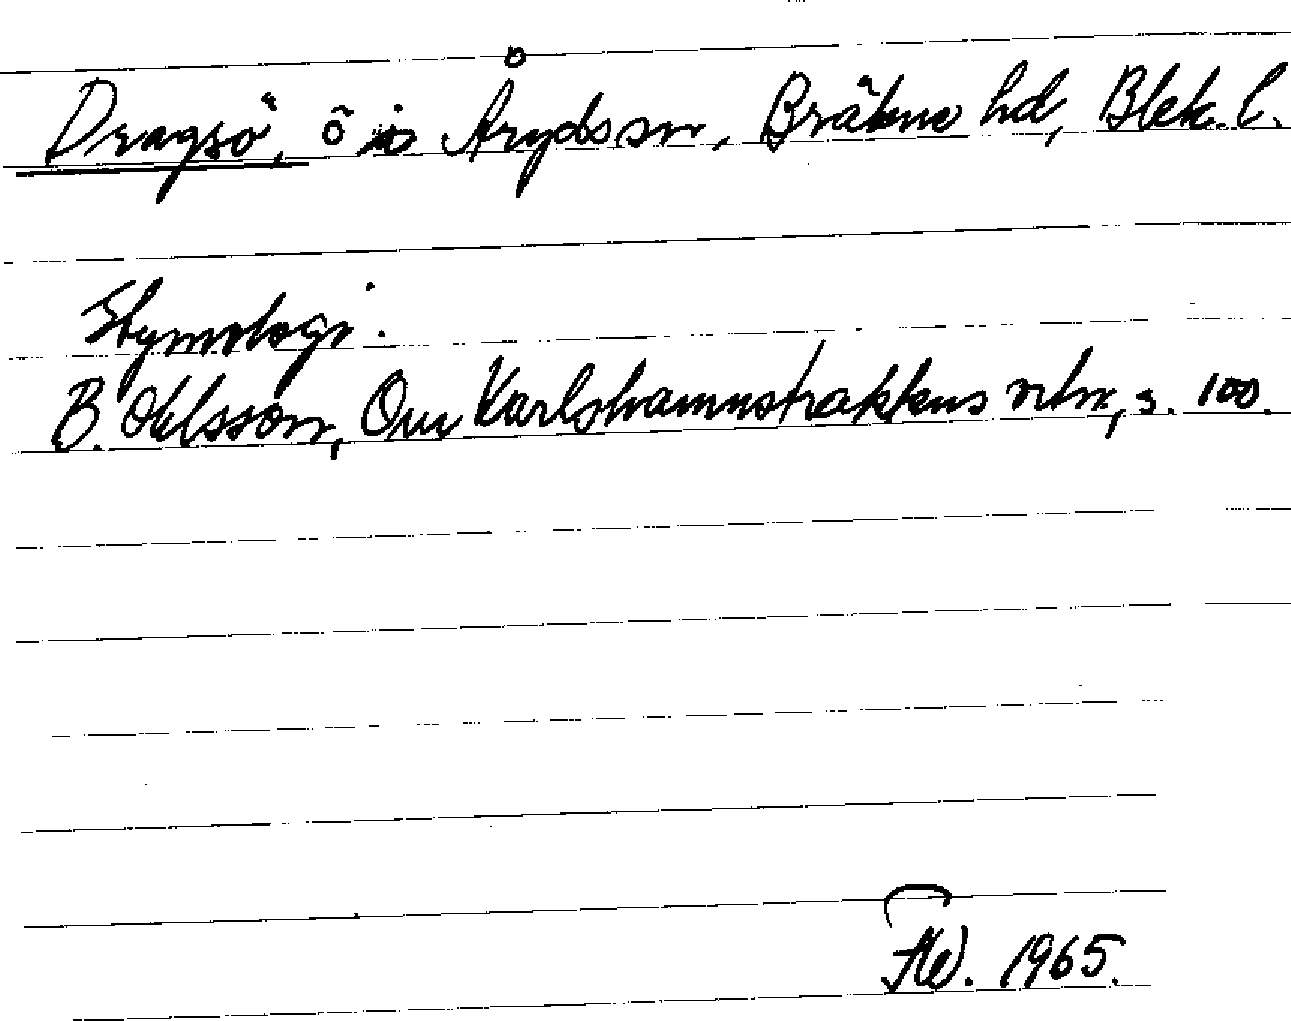 Dragsö, ö i Åryds sn, Bräkne hd, Blek. l.
Etymologi:
B. Ohlsson, Om Karlshamnstraktens
s. 100.
1965.